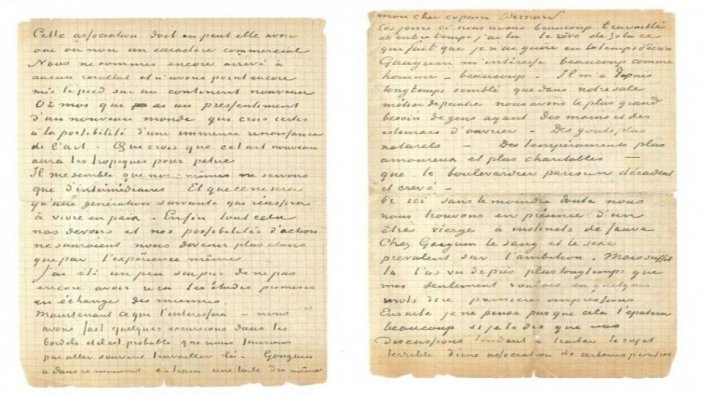 Cette association doit ou peut elle avoir
oui ou non un caractère commercial
Nous ne sommes encore arrivé à
aucun resultat et n'avons point encore
mis le pied sur un continent nouveau
Or moi qui ai un pressentiment
d'un nouveau monde qui crois certes
à la possibilité d'une immense renaissance
de l'art. Qui crois que cet art nouveau
aura les tropiques pour patrie.
Il me semble que nous-mêmes ne servons
que d'intermédiaires. Et que ce ne sera
qu'une génération suivante qui réussira
à vivre en paix. Enfin tout cela
nos devoirs et nos possibilités d'action
ne sauraient nous devenir plus clairs
que par l'expérience même.
J'ai été un peu surpris de ne pas
encore avoir reçu les études promises
en échange des miennes.
Maintenant ce qui t'interessera – nous
avons fait quelques excursions dans les
bordels et il est probable que nous finirons
par aller souvent travailler là. Gauguin
a dans ce moment en train une toile du même
mon cher copain Bernard
Ces jours ci nous avons beaucoup travaillé
et entre temps j'ai lu le rêve de Zola ce
qui fait que je n'ai guère eu le temps d'écrire
Gauguin m'intéresse beaucoup comme
homme – beaucoup – Il m'a depuis
longtemps semblé que dans notre sale
métier de peintre nous avons le plus grand
besoin de gens ayant des mains et des
estomacs d'ouvrier – Des gouts plus
naturels – Des tempéraments plus
amoureux et plus charitables –
que le boulevardier parisien décadent
et crevé –
Or ici sans le moindre doute nous
nous trouvons en présence d'un
être vierge à instincts de sauvage
Chez Gauguin le sang et le sexe
prévalent sur l'ambition. Mais suffit
tu l'as vu de près plus longtemps que
moi seulement voulais en quelques
mots dire premières impressions
Ensuite je ne pense pas que cela t'épatera
beaucoup si je te dis que nos
discussions tendent à traiter le sujet
terrible d'une association de certains peintres